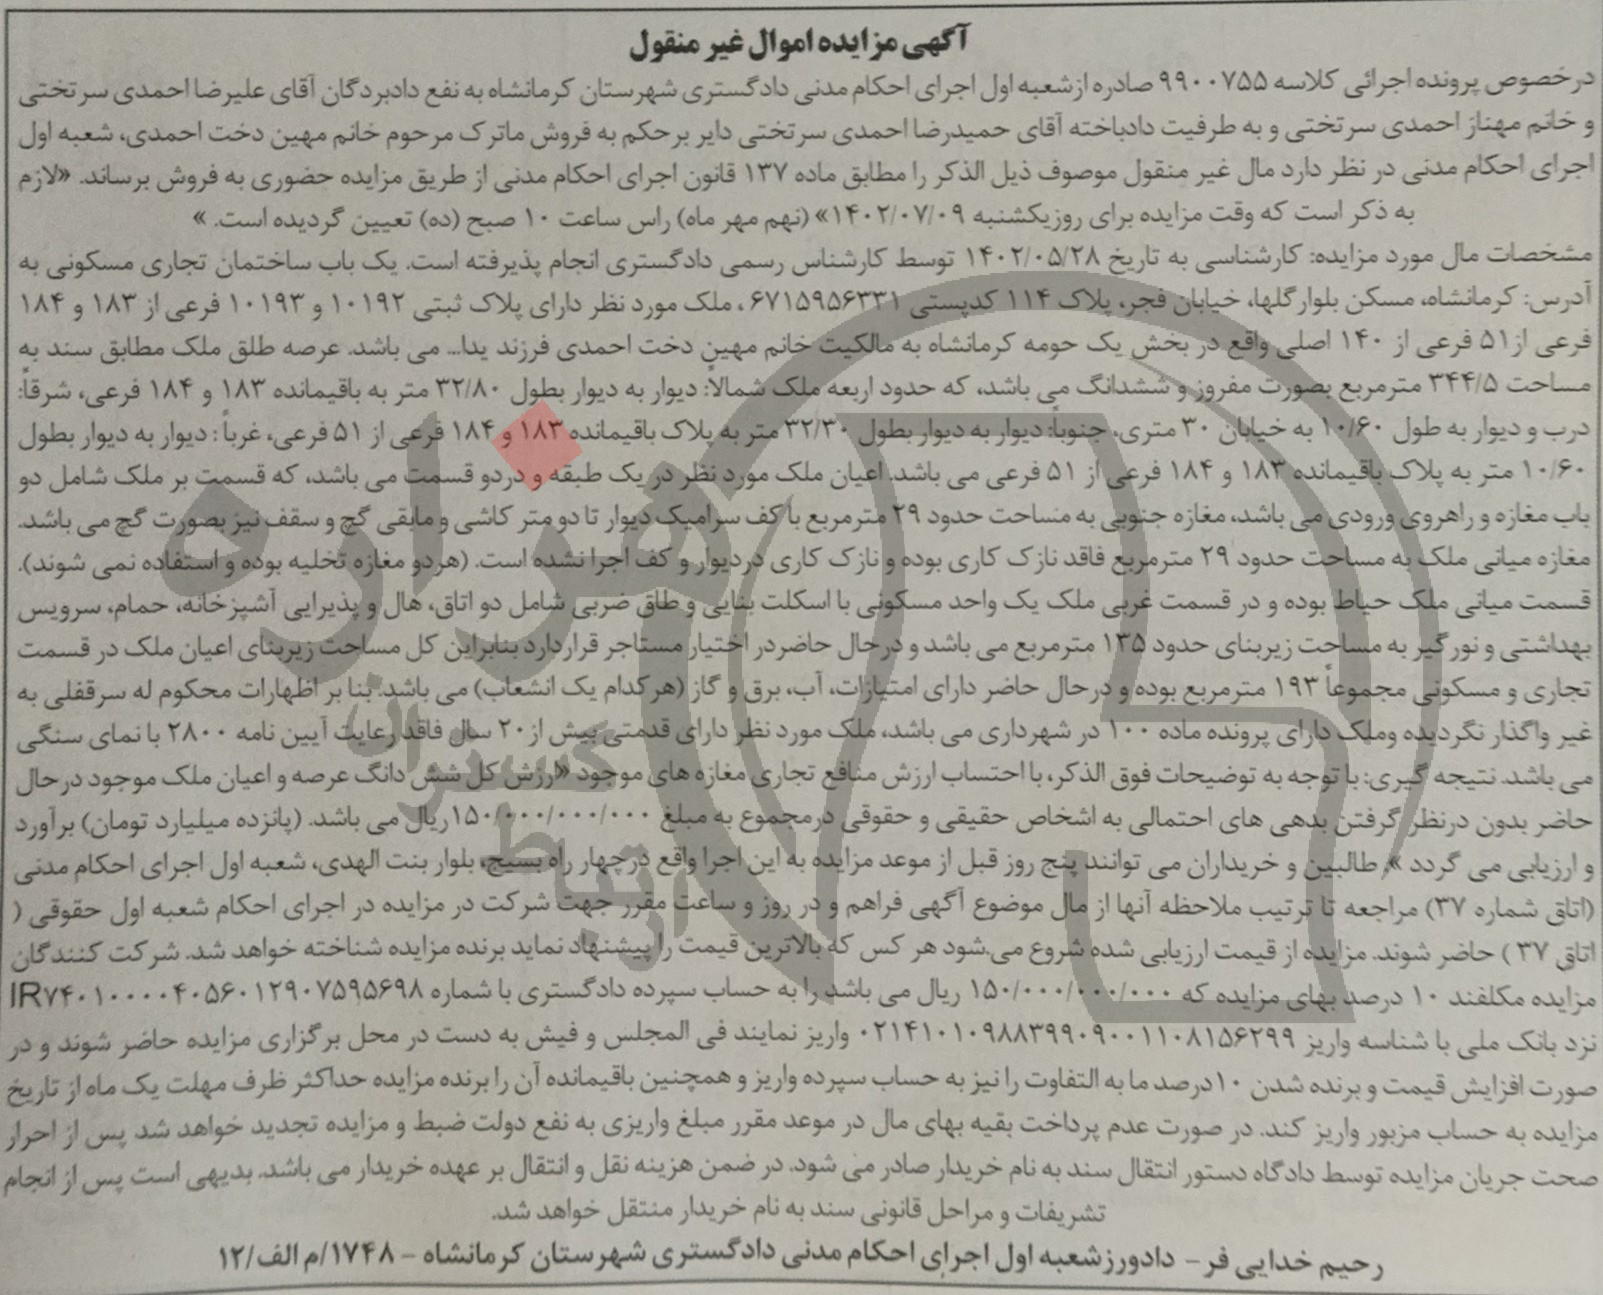 آگهی مزایده اموال غیر منقول
درخصوص پرونده اجرائی کلاسه ۹۹۰۰۷۵۵ صادره ازشعبه اول اجرای احکام مدنی دادگستری شهرستان کرمانشاه به نفع دادبردگان آقای علیرضا احمدی سرتختی
و خانم مهناز احمدی سرتختی و به طرفیت دادباخته آقای حمیدرضا احمدی سرتختی دایر برحکم به فروش ماترک مرحوم خانم مهین دخت احمدی، شعبه اول
اجرای احکام مدنی در نظر دارد مال غیر منقول موصوف ذیل الذکر را مطابق ماده ۱۳۷ قانون اجرای احکام مدنی از طریق مزایده حضوری به فروش برساند. «لازم
به ذکر است که وقت مزایده برای روزیکشنبه ۱۴۰۲/۰۷/۰۹» (نهم مهر ماه) راس ساعت ۱۰ صبح (ده) تعیین گردیده است. »
مشخصات مال مورد مزایده: کارشناسی به تاریخ ۱۴۰۲/۰۵/۲۸ توسط کارشناس رسمی دادگستری انجام پذیرفته است. یک باب ساختمان تجاری مسکونی به
آدرس: کرمانشاه، مسکن بلوارگلها، خیابان فجر، پلاک ۱۱۴ کدپستی ۶۷۱۵۹۵۶۳۳۱ ، ملک مورد نظر دارای پلاک ثبتی ۱۰۱۹۲ و ۱۰۱۹۳ فرعی از ۱۸۳ و ۱۸۴
فرعی از۵۱ فرعی از ۱۴۰ اصلی واقع در بخش یک حومه کرمانشاه به مالکیت خانم مهین دخت احمدی فرزند یدا... می باشد. عرصه طلق ملک مطابق سند به
مساحت ۳۴۴/۵ مترمربع بصورت مفروز و ششدانگ می باشد، که حدود اربعه ملک شمالاً: دیوار به دیوار بطول ۳۲/۸۰ متر به باقیمانده ۱۸۳ و ۱۸۴ فرعی، شرقاً:
درب و دیوار به طول ۱۰/۶۰ به خیابان ۳۰ متری، جنوباً: دیوار به دیوار بطول ۳۲/۳۰ متر به پلاک باقیمانده ۱۸۳ و ۱۸۴ فرعی از ۵۱ فرعی، غرباً: دیوار به دیوار بطول
۱۰/۶۰ متر به پلاک باقیمانده ۱۸۳ و ۱۸۴ فرعی از ۵۱ فرعی می باشد. اعیان ملک مورد نظر در یک طبقه و دردو قسمت می باشد، که قسمت بر ملک شامل دو
باب مغازه و راهروی ورودی می باشد، مغازه جنوبی به مساحت حدود ۲۹ مترمربع با کف سرامیک دیوار تا دو متر کاشی و مابقی گچ و سقف نیز بصورت گچ می باشد.
مغازه میانی ملک به مساحت حدود ۲۹ مترمربع فاقد نازک کاری بوده و نازک کاری دردیوار و کف اجرا نشده است. (هردو مغازه تخلیه بوده و استفاده نمی شوند).
قسمت میانی ملک حیاط بوده و در قسمت غربی ملک یک واحد مسکونی با اسکلت بنایی و طاق ضربی شامل دو اتاق، هال و پذیرایی آشپزخانه، حمام، سرویس
بهداشتی و نورگیر به مساحت زیربنای حدود ۱۳۵ مترمربع می باشد و درحال حاضردر اختیار مستاجر قراردارد بنابراین کل مساحت زیربنای اعیان ملک در قسمت
تجاری و مسکونی مجموعاً ۱۹۳ مترمربع بوده و درحال حاضر دارای امتیازات، آب، برق و گاز (هرکدام یک انشعاب) می باشد. بنا بر اظهارات محکوم له سرقفلی به
غیر واگذار نگردیده وملک دارای پرونده ماده ۱۰۰ در شهرداری می باشد، ملک مورد نظر دارای قدمتی بیش از۲۰ سال فاقد رعایت آیین نامه ۲۸۰۰ با نمای سنگی
می باشد. نتیجه گیری: با توجه به توضیحات فوق الذکر، با احتساب ارزش منافع تجاری مغازه های موجود «ارزش کل شش دانگ عرصه و اعیان ملک موجود درحال
حاضر بدون درنظر گرفتن بدهی های احتمالی به اشخاص حقیقی و حقوقی درمجموع به مبلغ ۱۵۰/۰۰۰/۰۰۰/۰۰۰ریال می باشد. (پانزده میلیارد تومان) برآورد
و ارزیابی می گردد ». طالبین و خریداران می توانند پنج روز قبل از موعد مزایده به این اجرا واقع درچهار راه بسیج، بلوار بنت الهدی، شعبه اول اجرای احکام مدنی
(اتاق شماره ۳۷) مراجعه تا ترتیب ملاحظه آنها از مال موضوع آگهی فراهم و در روز و ساعت مقرر جهت شرکت در مزایده در اجرای احکام شعبه اول حقوقی (
اتاق ۳۷ ) حاضر شوند. مزایده از قیمت ارزیابی شده شروع می‌شود هر کس که بالاترین قیمت را پیشنهاد نماید برنده مزایده شناخته خواهد شد. شرکت کنندگان
مزایده مکلفند ۱۰ درصد بهای مزایده که ۱۵۰/۰۰۰/۰۰۰/۰۰۰ ریال می باشد را به حساب سپرده دادگستری با شماره IR۷۴۰۱۰۰۰۰۴۰۵۶۰۱۲۹۰۷۵۹۵۶۹۸
نزد بانک ملی با شناسه واریز ۰۲۱۴۱۰۱۰۹۸۸۳۹۹۰۹۰۰۱۱۰۸۱۵۶۲۹۹ واریز نمایند فی المجلس و فیش به دست در محل برگزاری مزایده حاضر شوند و در
صورت افزایش قیمت و برنده شدن ۱۰درصد ما به التفاوت را نیز به حساب سپرده واریز و همچنین باقیمانده آن را برنده مزایده حداکثر ظرف مهلت یک ماه از تاریخ
مزایده به حساب مزبور واریز کند. در صورت عدم پرداخت بقیه بهای مال در موعد مقرر مبلغ واریزی به نفع دولت ضبط و مزایده تجدید خواهد شد پس از احراز
صحت جریان مزایده توسط دادگاه دستور انتقال سند به نام خریدار صادر می شود. در ضمن هزینه نقل و انتقال بر عهده خریدار می باشد. بدیهی است پس از انجام
تشریفات و مراحل قانونی سند به نام خریدار منتقل خواهد شد.
رحیم خدایی فر – دادورزشعبه اول اجرای احکام مدنی دادگستری شهرستان کرمانشاه – ۱۷۴۸/م الف/۱۲
هزاره
گستران
ارتباط